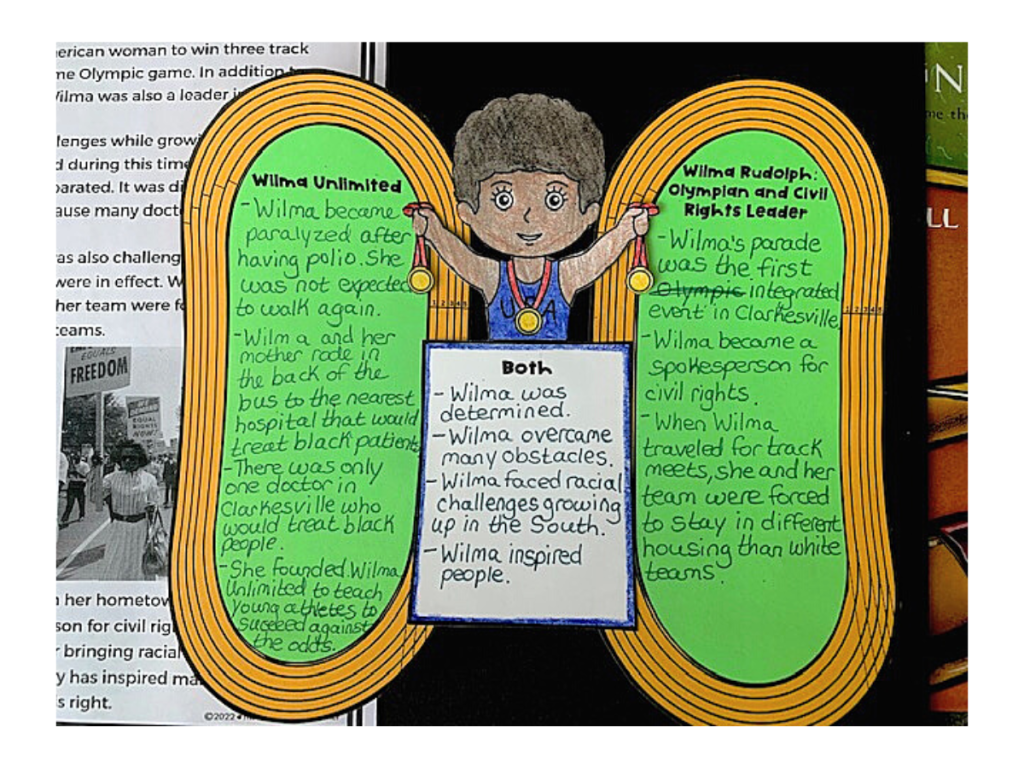 erican woman to win three track
me Olympic game. In addition
Wilma was also a leader i
lenges while grow
d during this time
parated. It was di
ause many doct
as also challeng
were in effect. W
her team were fo
teams.
EQUALS
FREEDOM
WE DEMAND
EQUAL
RIGHTS
NOW!
her hometow
son for civil righ
r bringing racial
y has inspired ma
s right.
©2022
Wilma Unlimited
-Wilma became
paralyzed after
having polio. She
was not expected
to walk again.
-Wilma and her
mother rode in
the back of the
bus to the nearest
hospital that would
treat black patients
-There was only
one doctor in
Clarkesville who
would treat black
people.
-She founded Wilma
Unlimited to teach
young athletes to
succeed against
the odds.
1 2 3 4 5
USA
Both
- Wilma was
determined.
- Wilma overcame
many obstacles.
- Wilma faced racial
challenges growing
up in the South.
- Wilma inspired
people.
Wilma Rudolph:
Olympian and Civil
Rights Leader
- Wilma's parade
was the first
Olympic integrated
event in Clarkesville,
- Wilma became a
spokesperson for
civil rights.
- When Wilma
traveled for track
meets, she and her
team were forced
to stay in different
housing than white
teams.
1 2 3 4 5
N
me the
LL